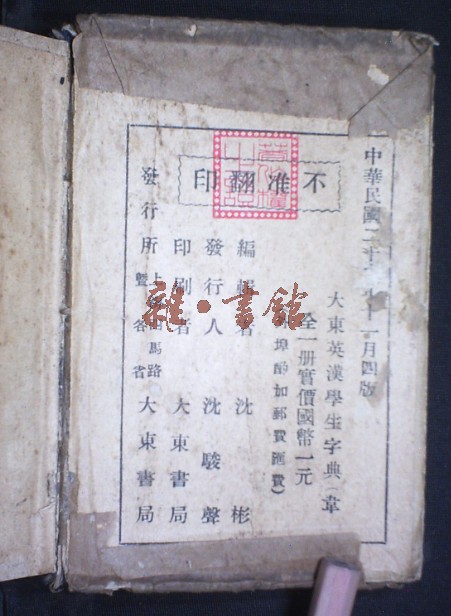 中華民國二十年十一月四版
大東英漢學生字典
全一册實價國幣一元
埠酌加郵費匯費)
不准翻印
編輯者 沈彬
發行人 沈駿聲
印刷者 大東書局
發行所 上海四馬路暨各省 大東書局
雜·書館